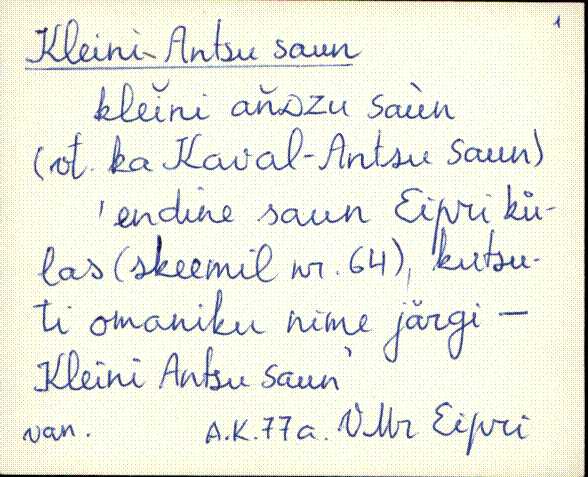 1
Kleini-Antsu saun
kleĭni aňᴅzu saùn
(vt. ka Kaval-Antsu saun)
'endine saun Eipri kü-
las (skeemil nr. 64), kutsu-
ti omaniku nime järgi —
Kleini Antsu saun'
van. A.K. 77a. VMr Eipri